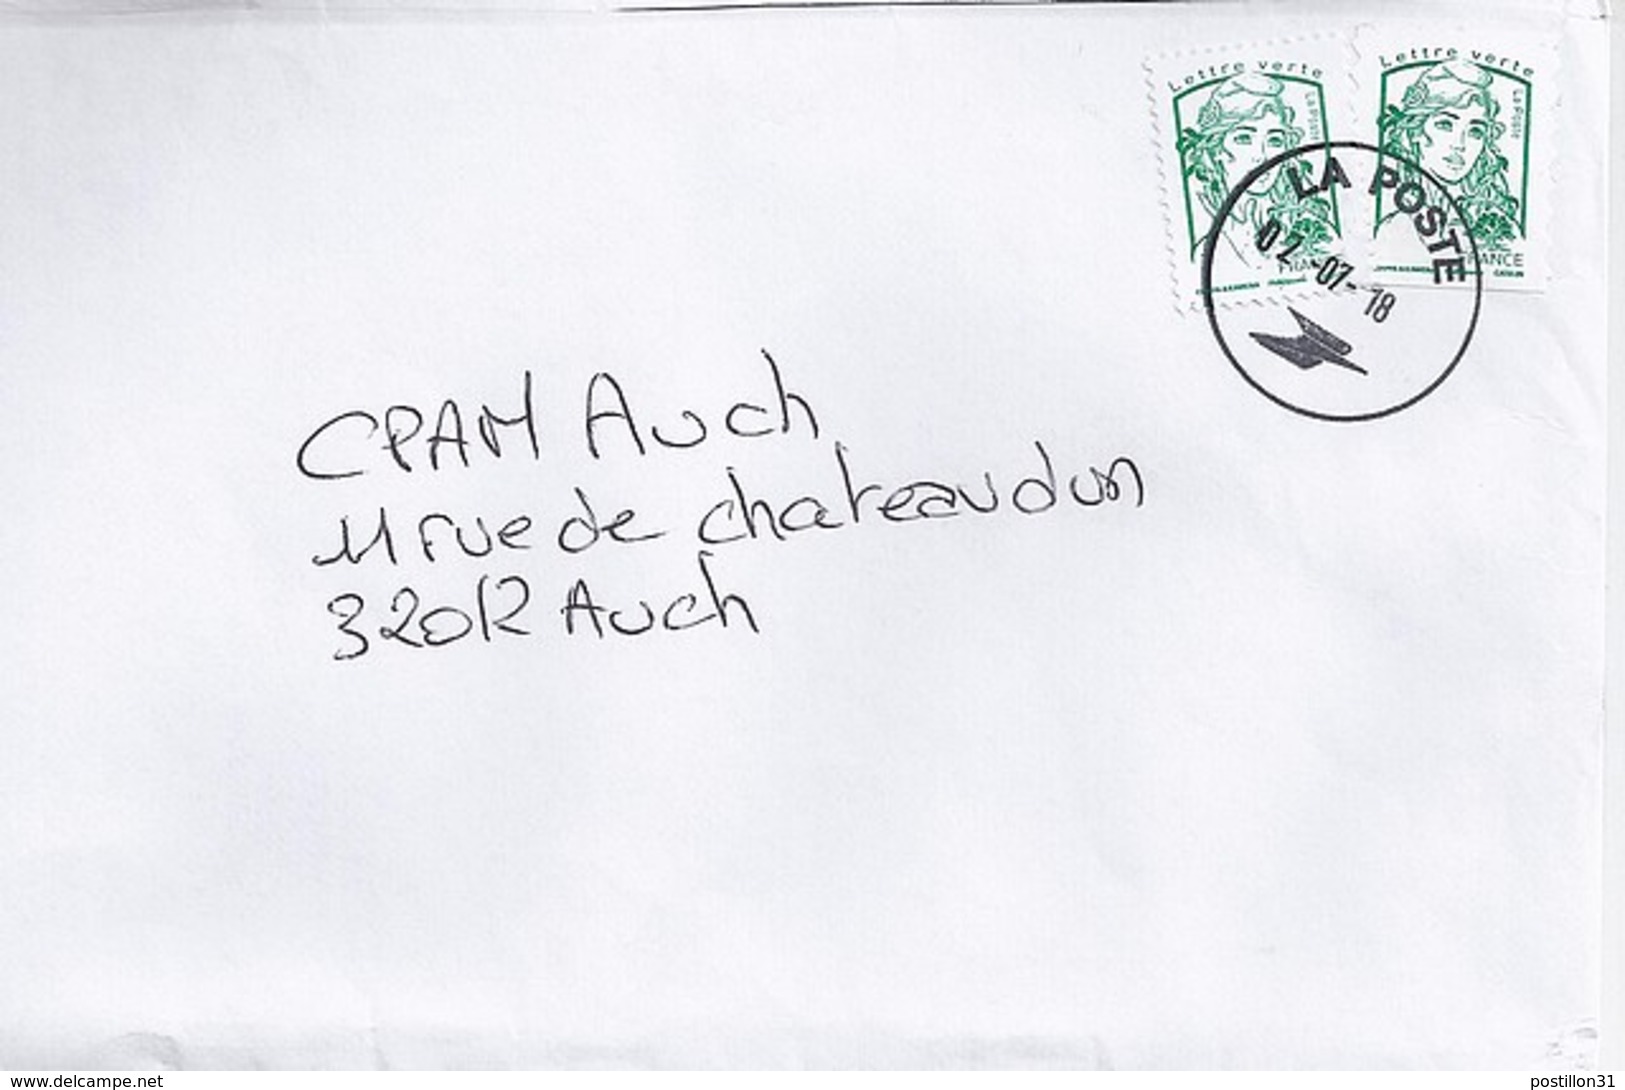 Lettre verte
Lettre verte
La Poste
La Poste
LA POSTE
02-07-18
FRANCE
CPAM Auch
11 rue de chateaudun
32012 Auch
www.delcampe.net
postillon31